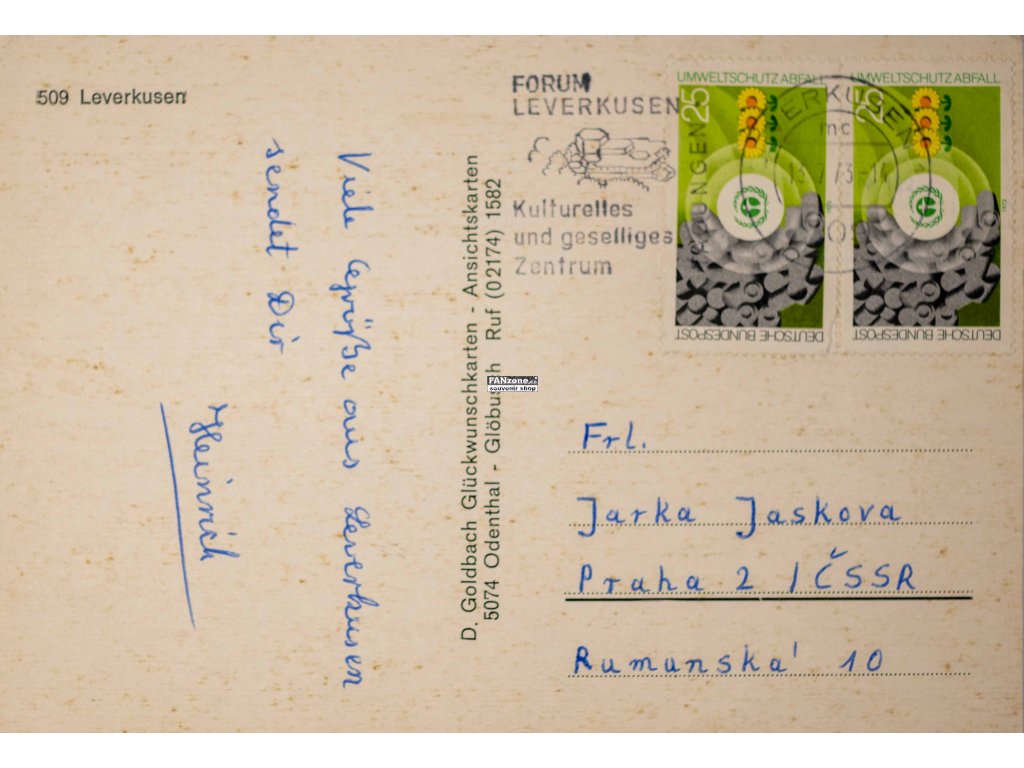 509 Leverkusen
Viele Grüße aus Leverkusen
sendet Dir
Heinrich
D. Goldbach Glückwunschkarten - Ansichtskarten
5074 Odenthal - Glöbusch Ruf (02174) 1582
FANzone.cz
souvenir shop
FORUM
LEVERKUSEN
Kulturelles
und geselliges
Zentrum
TAGUNGEN
LEVERKUSEN
mc
73-14
UMWELTSCHUTZ ABFALL
25
DEUTSCHE BUNDESPOST
UMWELTSCHUTZ ABFALL
25
DEUTSCHE BUNDESPOST
Frl.
Jarka Jaskova
Praha 2 / ČSSR
Rumunská 10